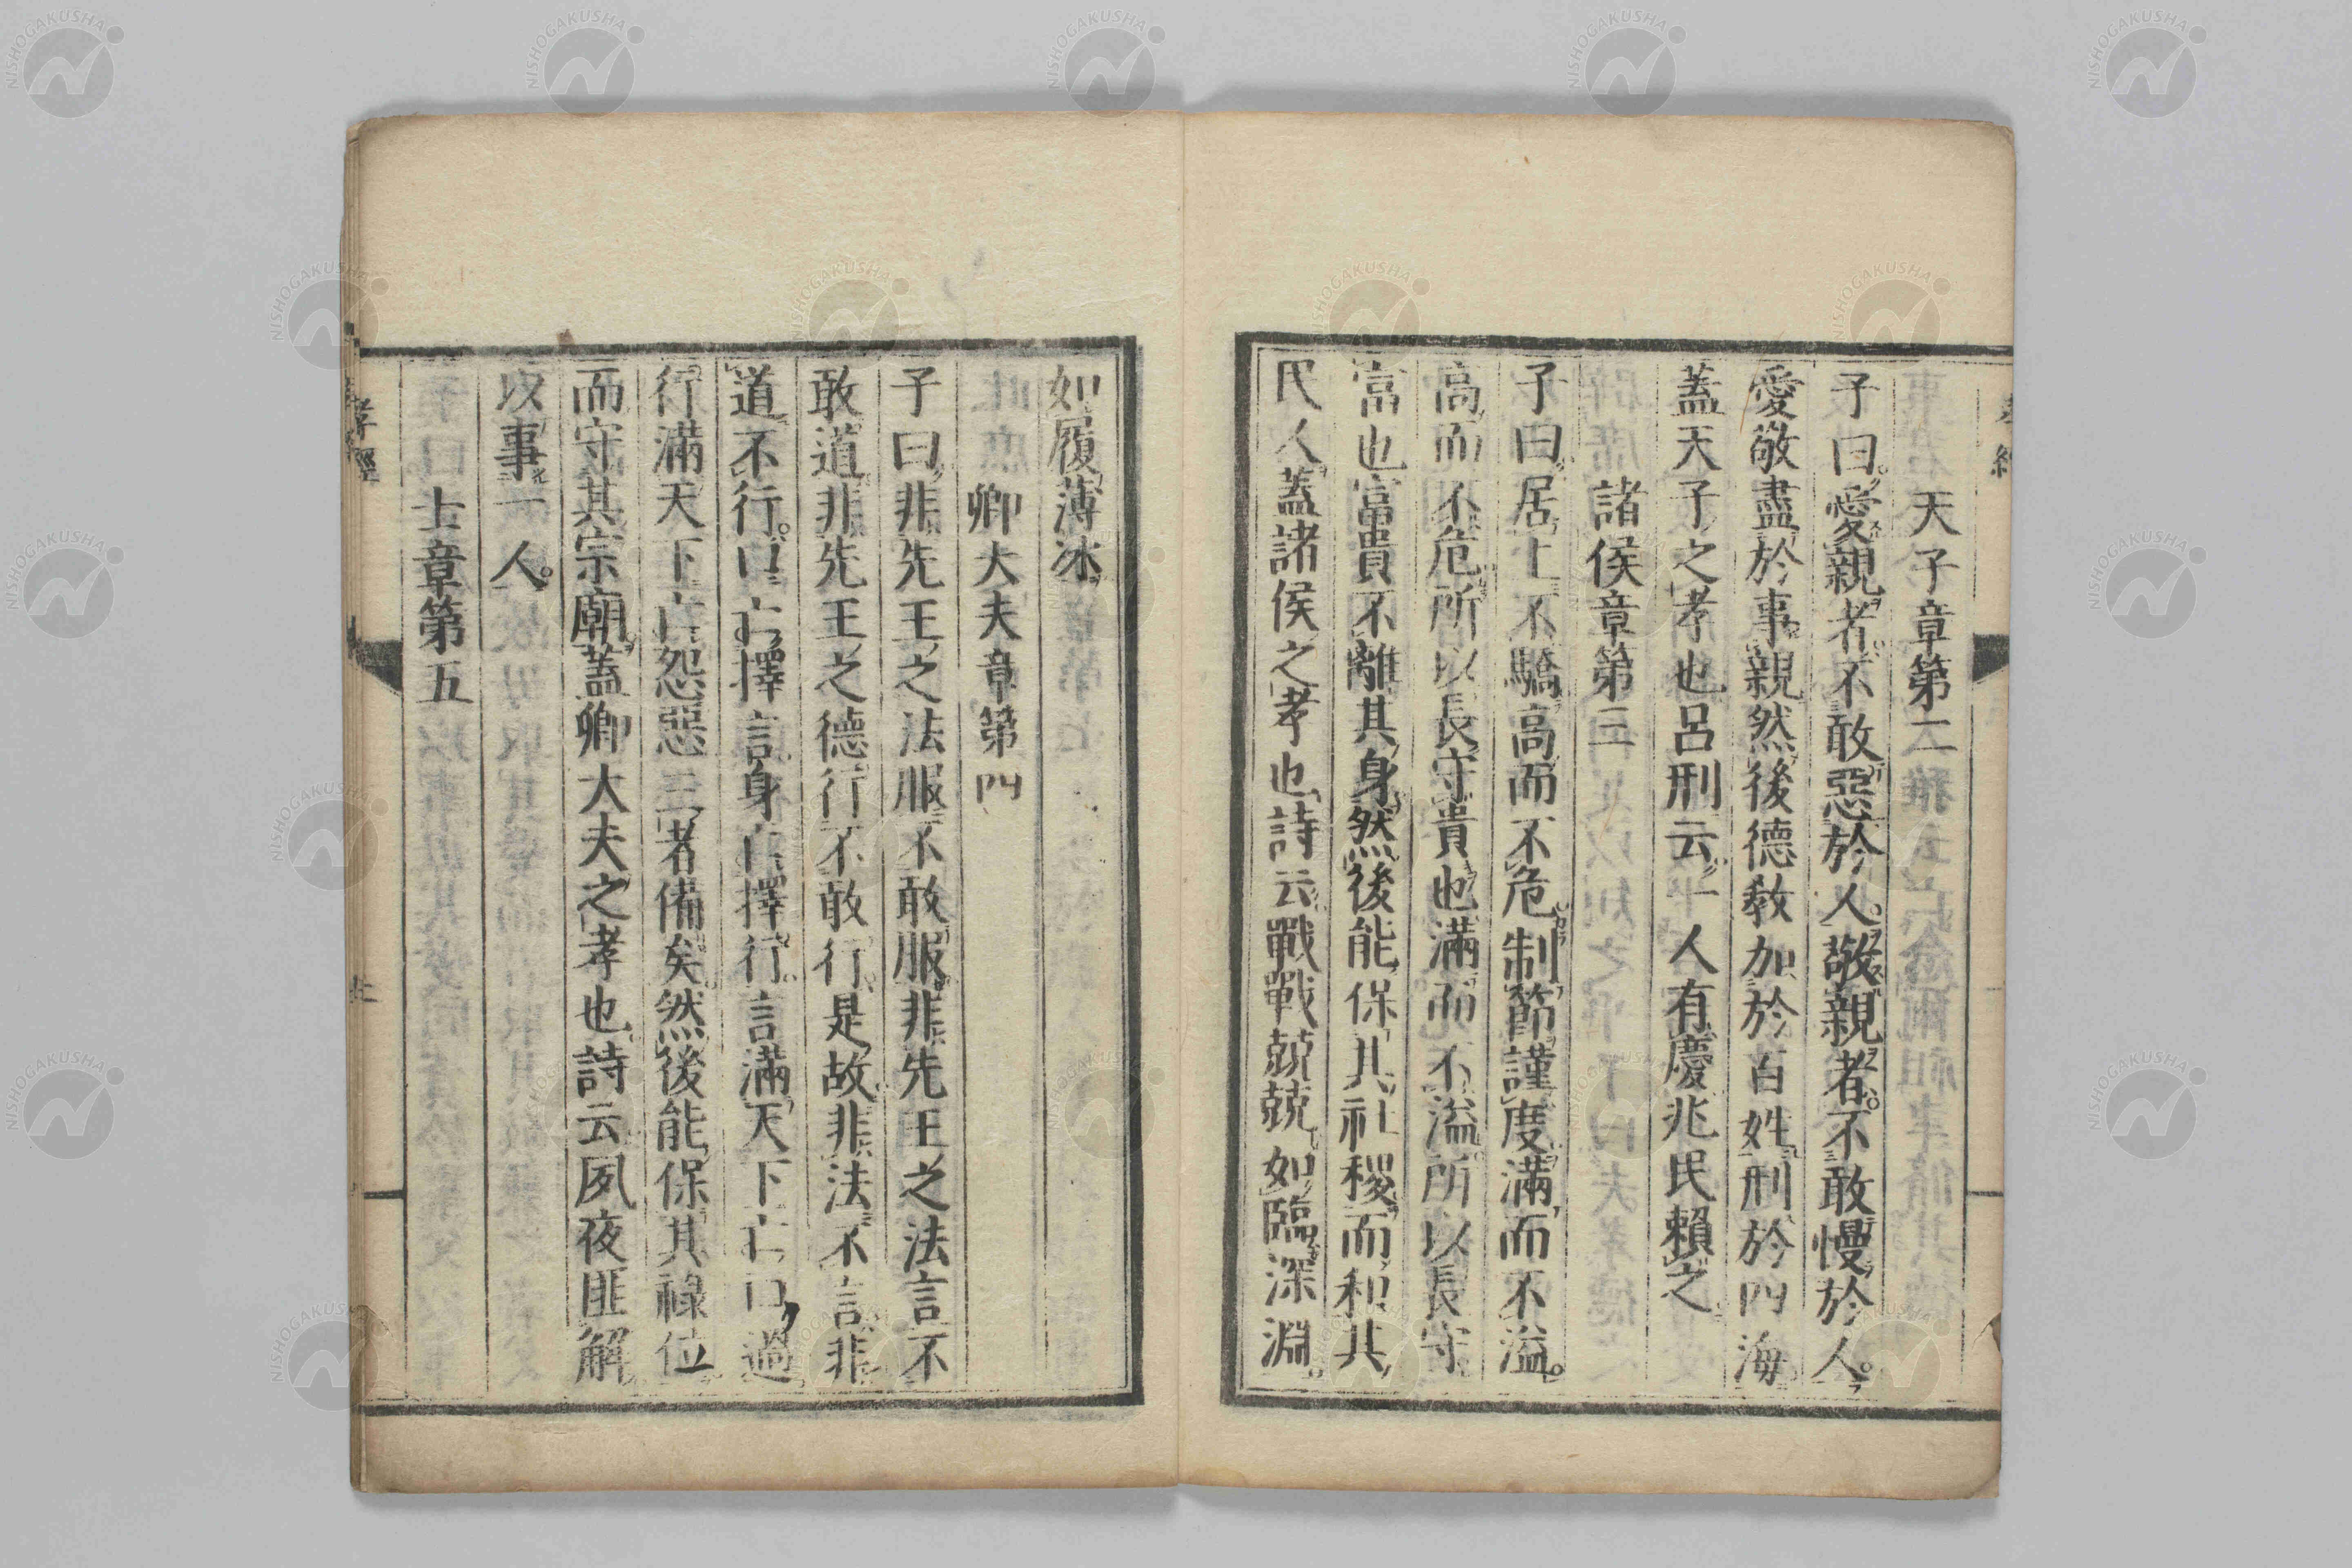 天子章第二
子曰愛親者不敢惡於人敬親者不敢慢於人
愛敬盡於事親然後德教加於百姓刑於四海
蓋天子之孝也呂刑云一人有慶兆民賴之
諸侯章第三
子曰居上不驕高而不危制節謹度滿而不溢
高而不危所以長守貴也滿而不溢所以長守
富也富貴不離其身然後能保其社稷而和其
民人蓋諸侯之孝也詩云戰戰兢兢如臨深淵
如履薄冰
卿大夫章第四
子曰非先王之法服不敢服非先王之法言不
敢道非先王之德行不敢行是故非法不言非
道不行口亡擇言身亡擇行言滿天下亡口過
行滿天下亡怨惡三者備矣然後能保其祿位
而守其宗廟蓋卿大夫之孝也詩云夙夜匪解
以事一人
士章第五
孝經
NISHOGAKUSHA